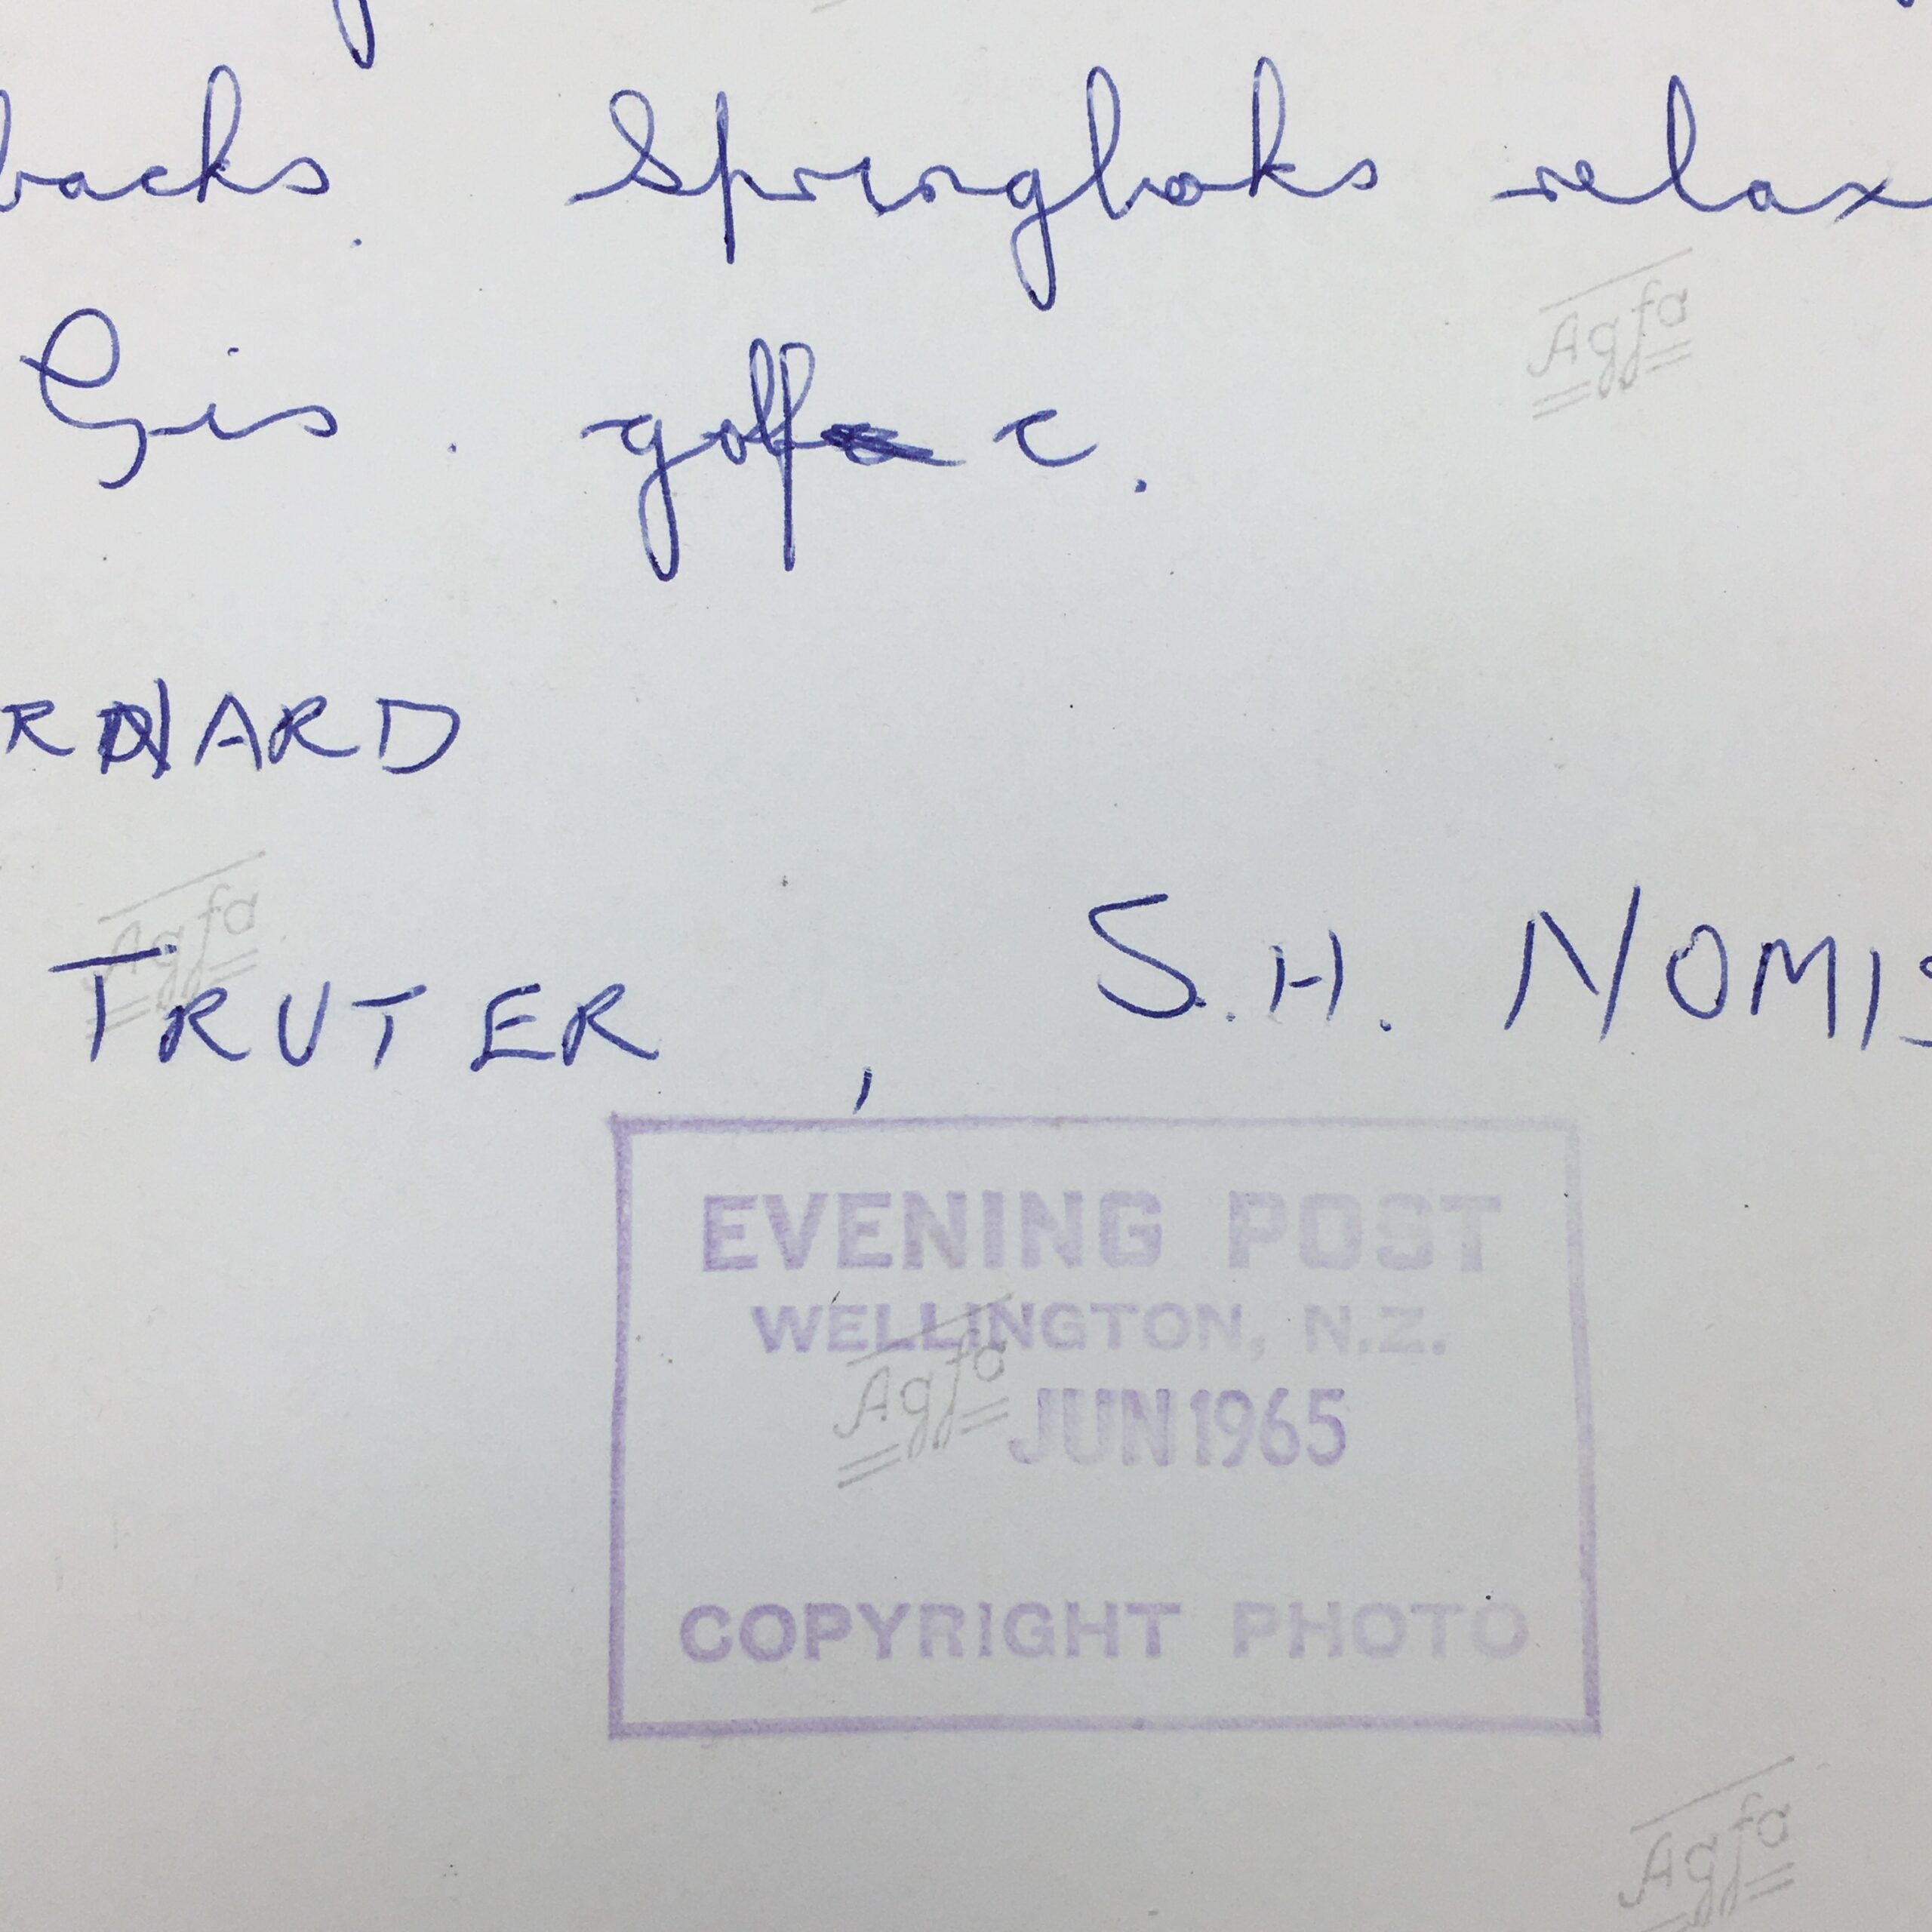 backs. Springboks relax
Gis. golf c.
RNARD
TRUTER, S.H. NOMIS
EVENING POST
WELLINGTON, N.Z.
JUN 1965
COPYRIGHT PHOTO
Agfa
Agfa
Agfa
Agfa